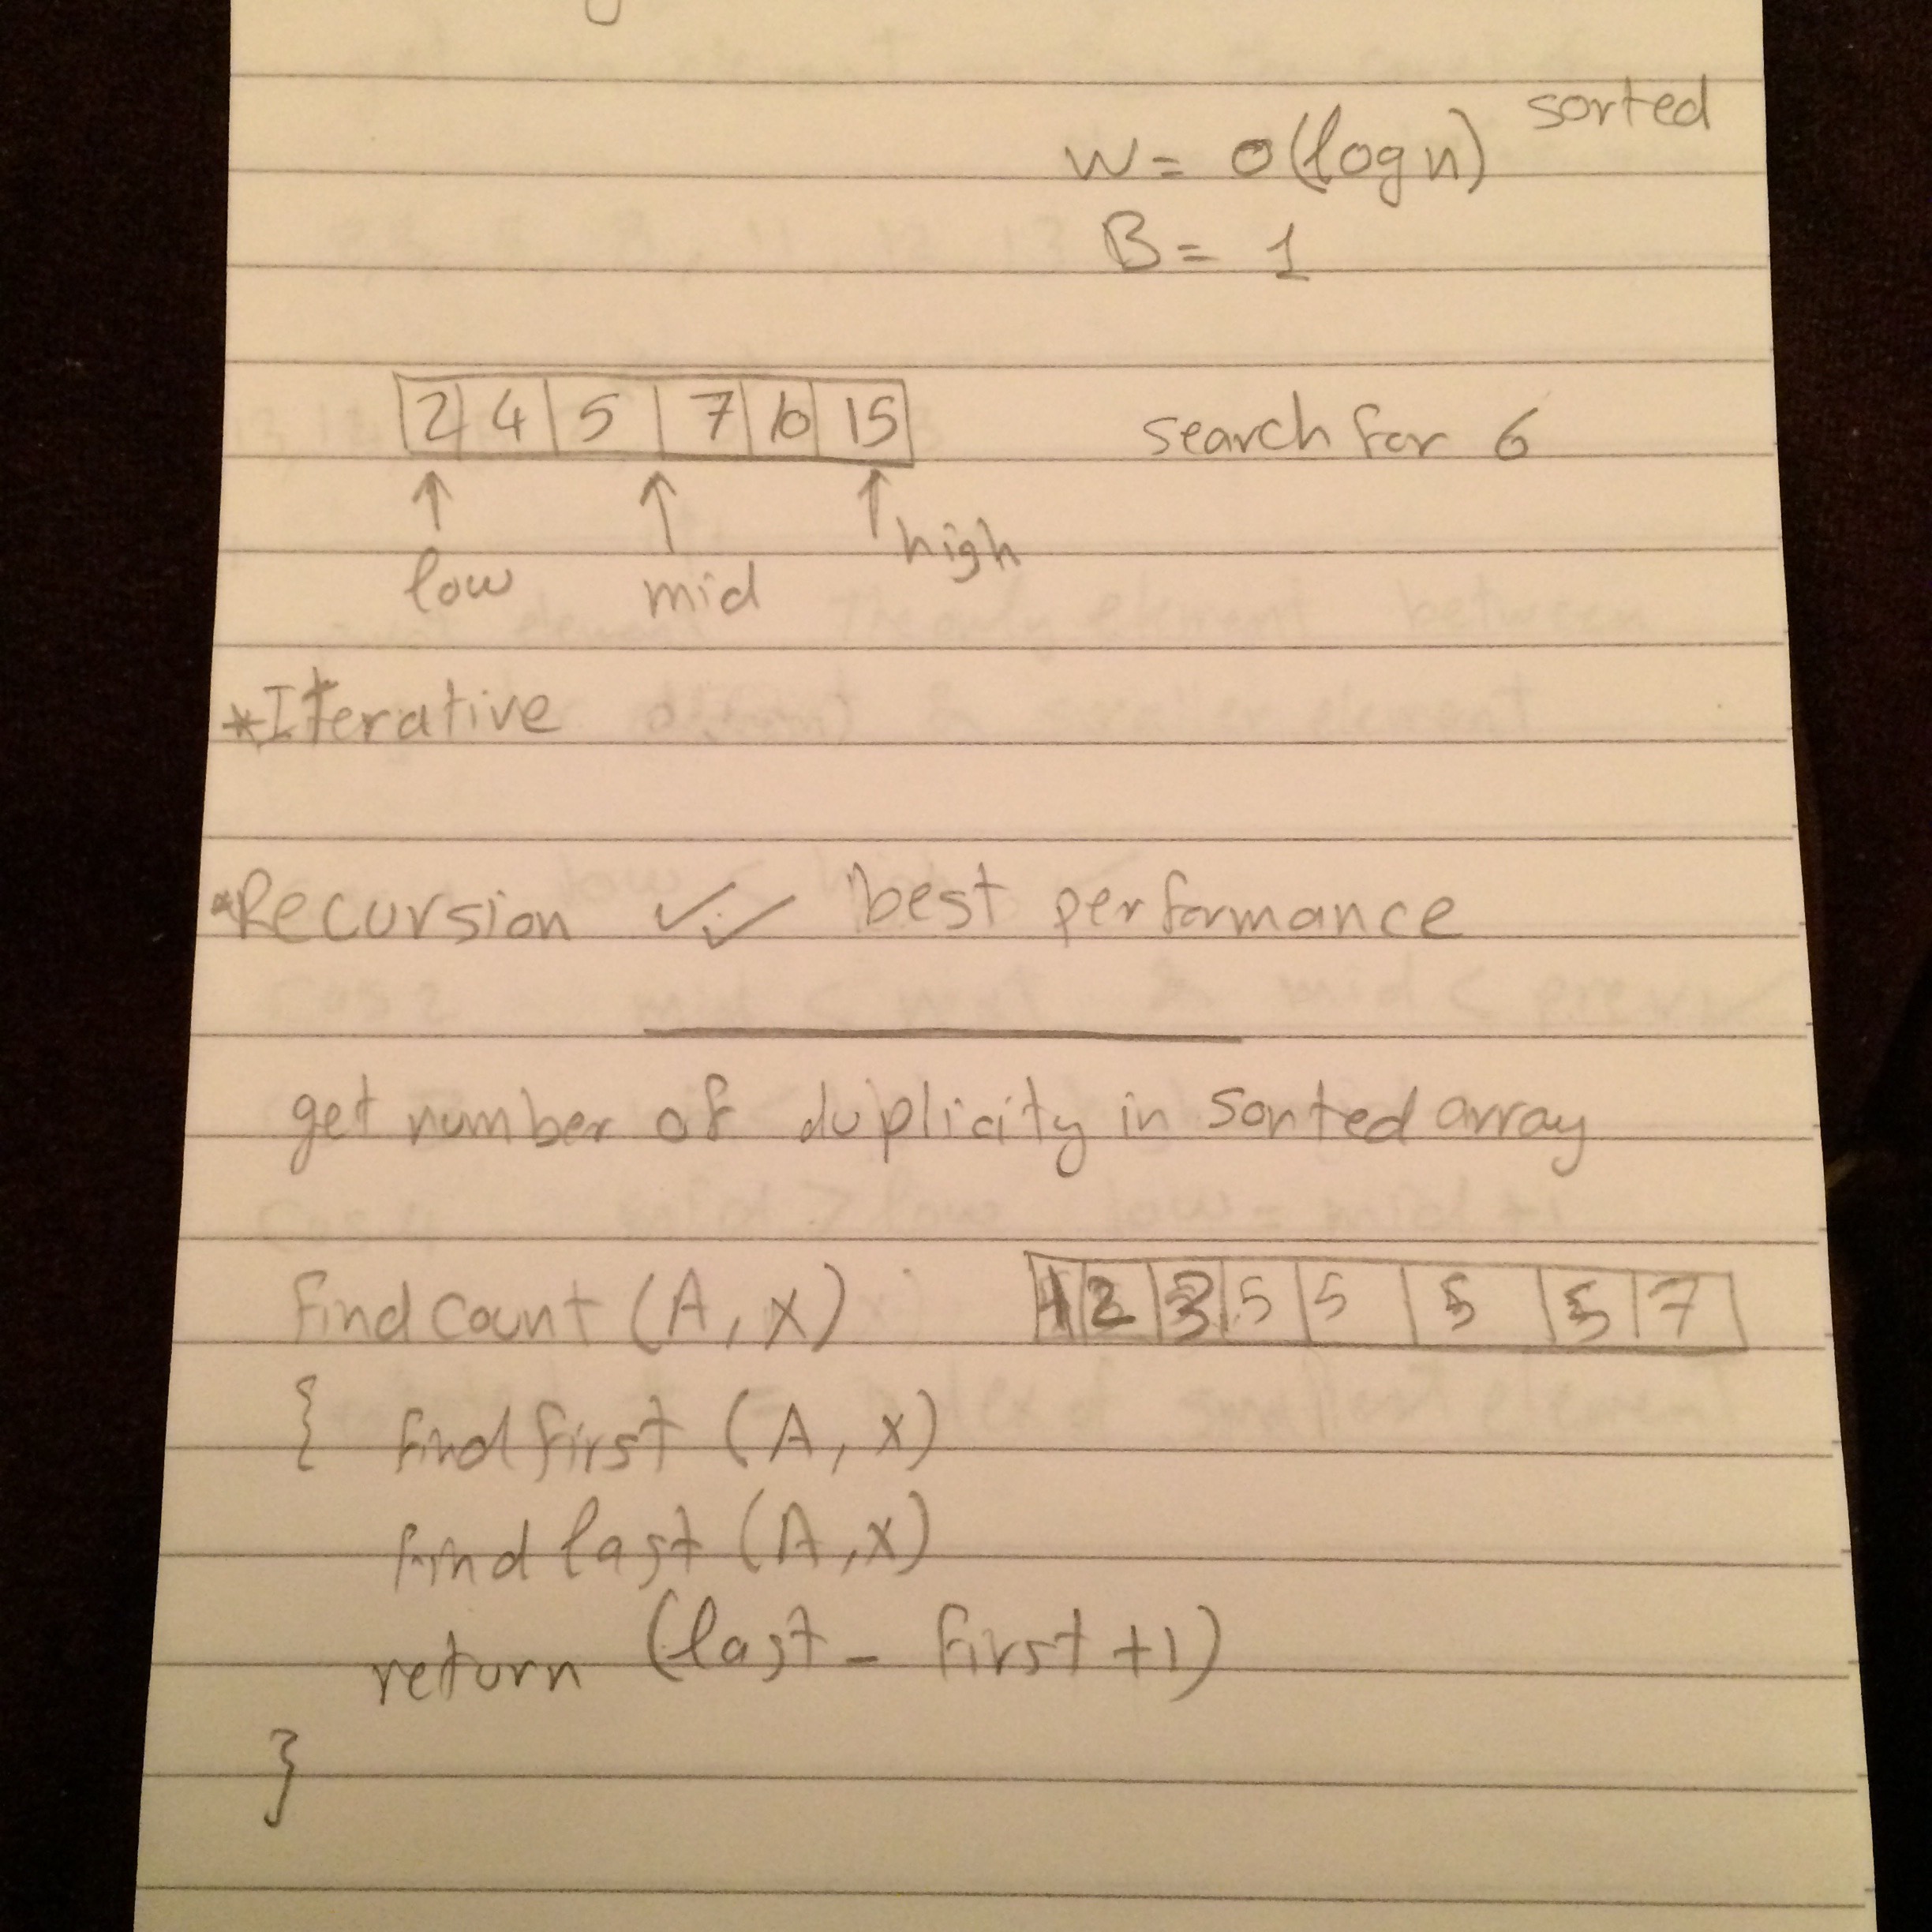 sorted
W = O(log n)
B = 1
2 4 5 7 10 15 search for 6
low mid high
*Iterative
*Recursion ✓✓ best performance
get number of duplicity in sorted array
find count (A, x) 1 2 3 5 5 5 5 7
{ find first (A, x)
find last (A, x)
return (last - first +1)
}